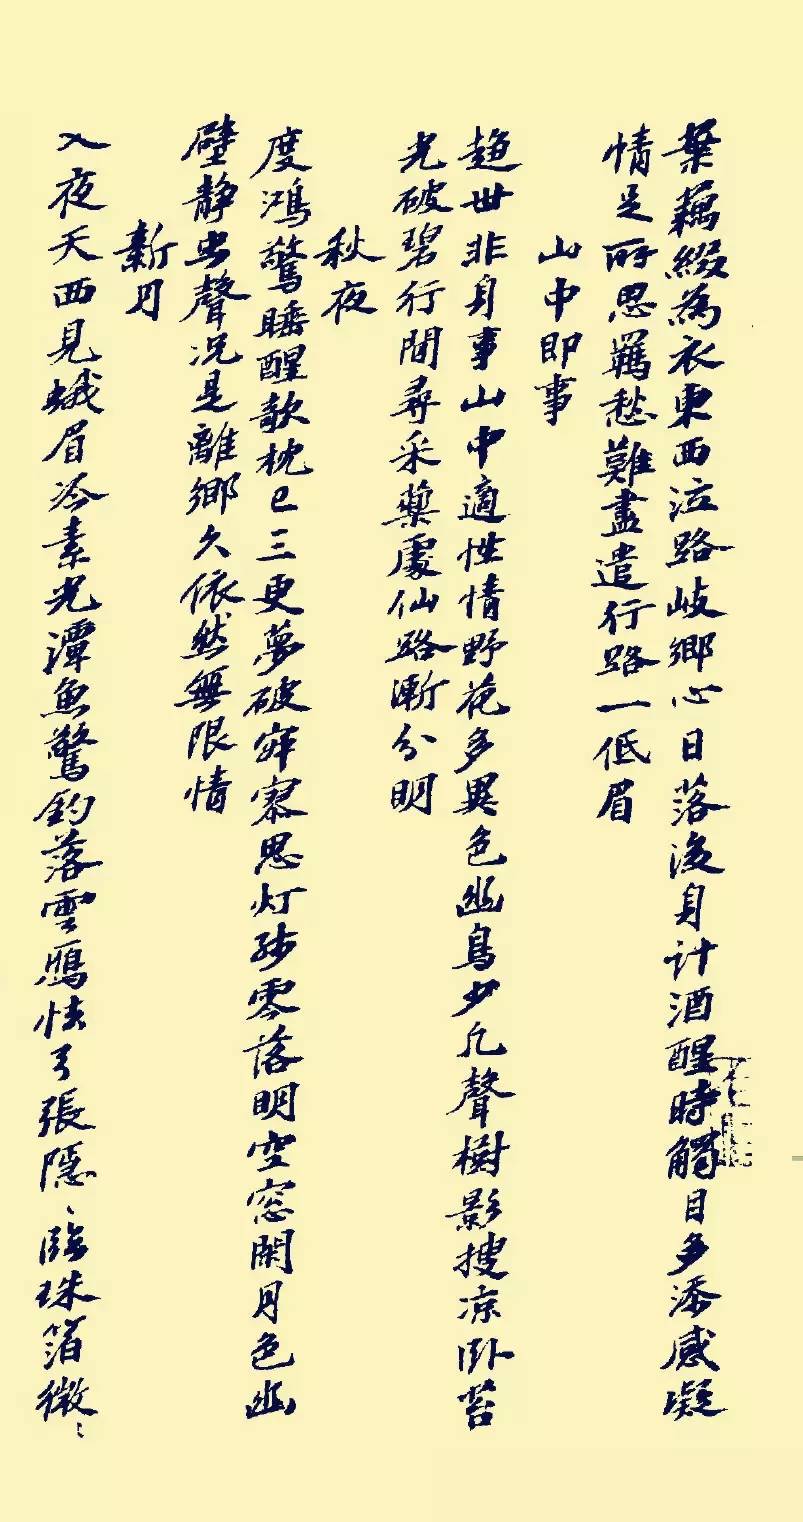 葉藕綴為衣東西泣路岐鄉心日落後身計酒醒時觸目多添感凝
情足所思羈愁難盡遣行路一低眉
山中即事
趨世非身事山中適性情野花多異色幽鳥少凡聲樹影搜涼卧苔
光破碧行閒尋采藥處仙路漸分明
秋夜
度鴻驚睡醒欹枕已三更夢破寂寥思灯殘零落明空窓閑月色幽
壁静虫聲况是離鄉久依然無限情
新月
入夜天西見蛾眉冷素光潭魚驚釣落雲鴈怯弓張隱〻臨珠箔微〻